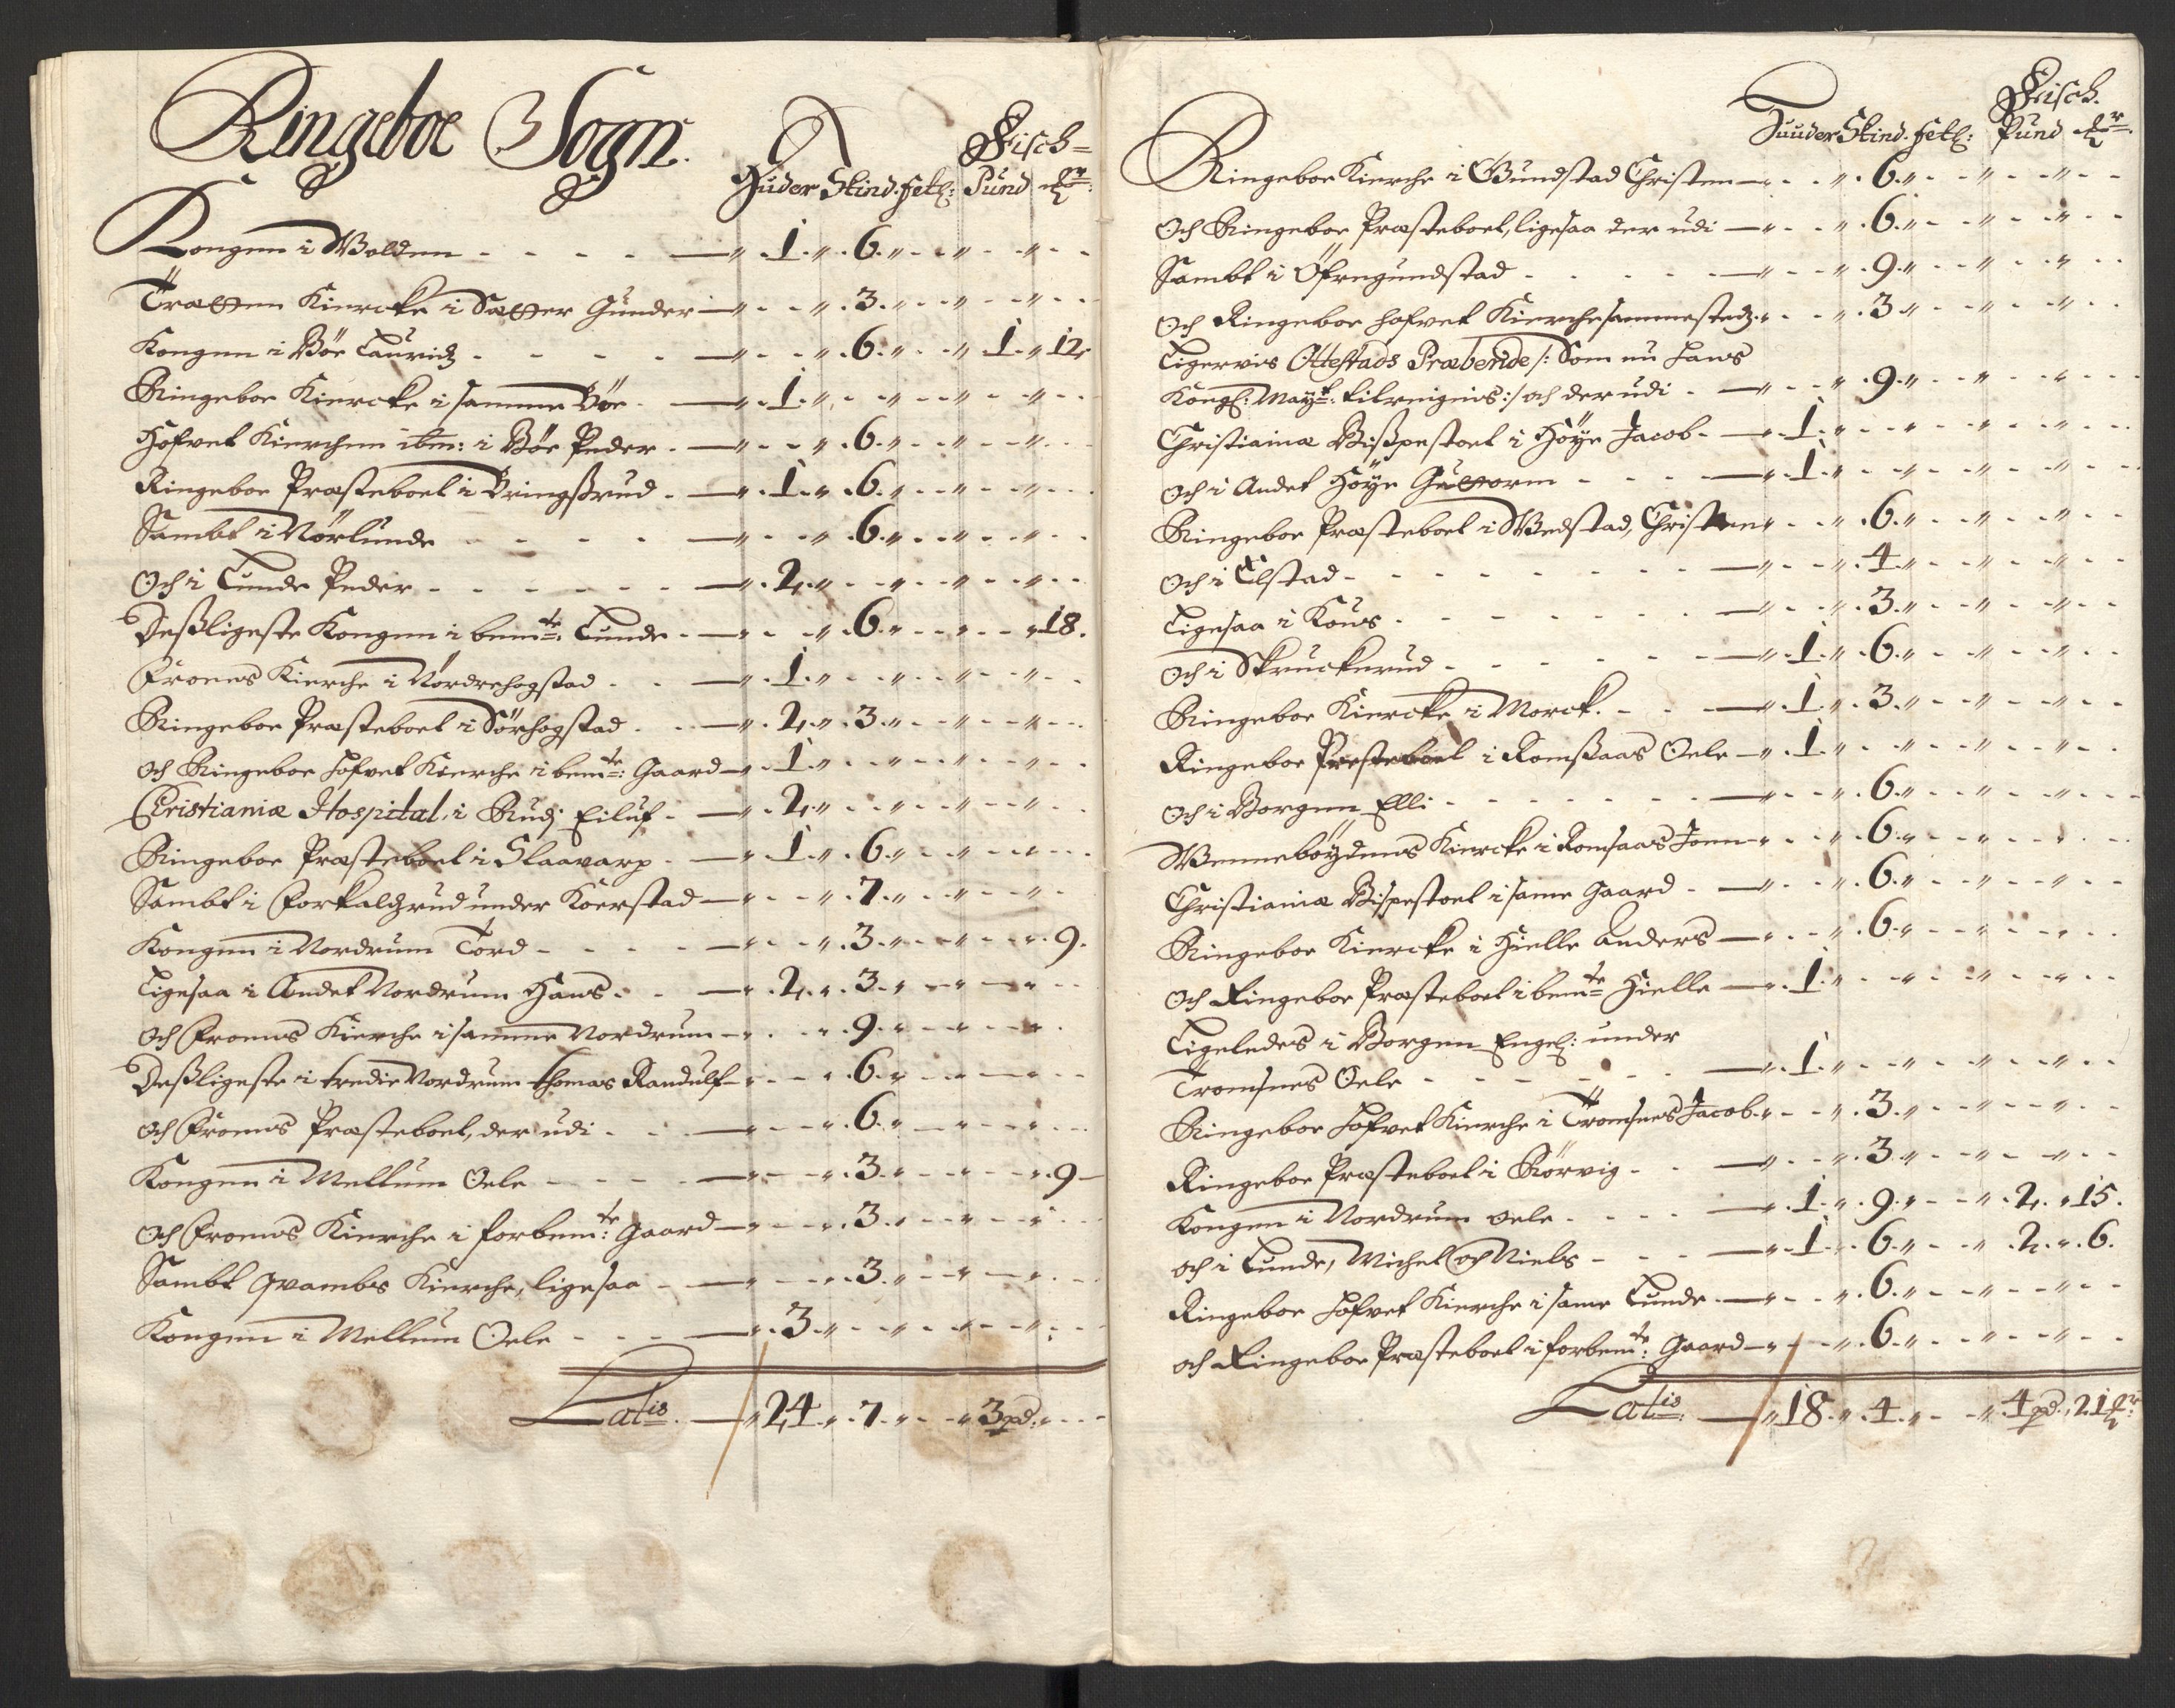 Ringeboe Sogn.
Fisch=
Huder Skind. fetl: Pund
Kongen i Wolden - 1 - 6
Trætten Kiercke i Sætter Gunder - 3
Kongen i Bøe Lauridz - 6 - 1 - 12
Ringeboe Kiercke i samme Bøe - 1
Hofvet Kierchen ibm: i Bøe Peder - 6
Ringeboe Præsteboel i Bringßrud - 1 - 6
Sambt i Nørlunde - 6
Och i Lunde Peder - 2
Deßligeste Kongen i bemte: Lunde - 6 - 18.
Froens Kierche i Nordrehogstad - 1
Ringeboe Præsteboel i Sørhogstad - 2 - 3
och Ringeboe hofvet Kierche i bemte: Gaard - 1
Christianiæ Hospital i Rudj Eiluf - 2
Ringeboe Præsteboel i Slaavarp - 1 - 6
Sambt i Forkalgrud under Koerstad - 7
Kongen i Nordrum Tord - 3 - 9.
Ligesaa i Andet Nordrum Hans - 2 - 3
Och Froens Kierche i samme Nordrum - 9
Deßligeste i tredie Nordrum Thomas Randulf - 6
och Froens Præsteboel, der udi - 6
Kongen i Mellum Oele - 3 - 9
Och Froens Kierche i forbemte: Gaard - 3
Sambt Qvambs Kierche, ligesaa - 3
Kongen i Mellum Oele - 3
Latis - 24 - 7 - 3 pd.
Fisch.
Huder Skind. fetl: Pund
Ringeboe Kierche i Gundstad Christen - 6
Och Ringeboe Præsteboel, ligesaa der udi - 6
Sambt i Øfregundstad - 9
Och Ringeboe hofvet Kierche sammestedz - 3
Ligervis Ottestads Præbende /: Som nu hans
Kongl: Mayt: tilreignis :/ och der udi - 9
Christianiæ Bißpestoel i Høye Jacob - 1
Och i Andet Høye Guttorm - 1
Ringeboe Præsteboel i Wedstad, Christen - 6
Och i Elstad - 4
Ligesaa i Kous - 3
Och i Skruckerud - 1 - 6
Ringeboe Kiercke i Morck - 1 - 3
Ringeboe Præsteboel i Romßaas Oele - 1
Och i Borgen Elli - 6
Wennebøydens Kiercke i Romsaas Joen - 6
Christianiæ Bispestoel i same Gaard - 6
Ringeboe Kiercke i Hielle Anders - 6
Och Ringeboe Præsteboel i bemte Hielle - 1
Ligeledes i Borgen Engel: under
Tromsnes Oele - 1
Ringeboe Hofvet Kierche i Tromsnes Jacob - 3
Ringeboe Præsteboel i Kørvig - 3
Kongen i Nordrum Oele - 1 - 9 - 2 - 15.
och i Lunde, Michel och Niels - 1 - 6 - 2 - 6.
Ringeboe Hofvet Kierche i same Lunde - 6
och Ringeboe Præsteboel i forbemte: Gaard - 6
Latis - 18 - 4 - 4 pd. 21